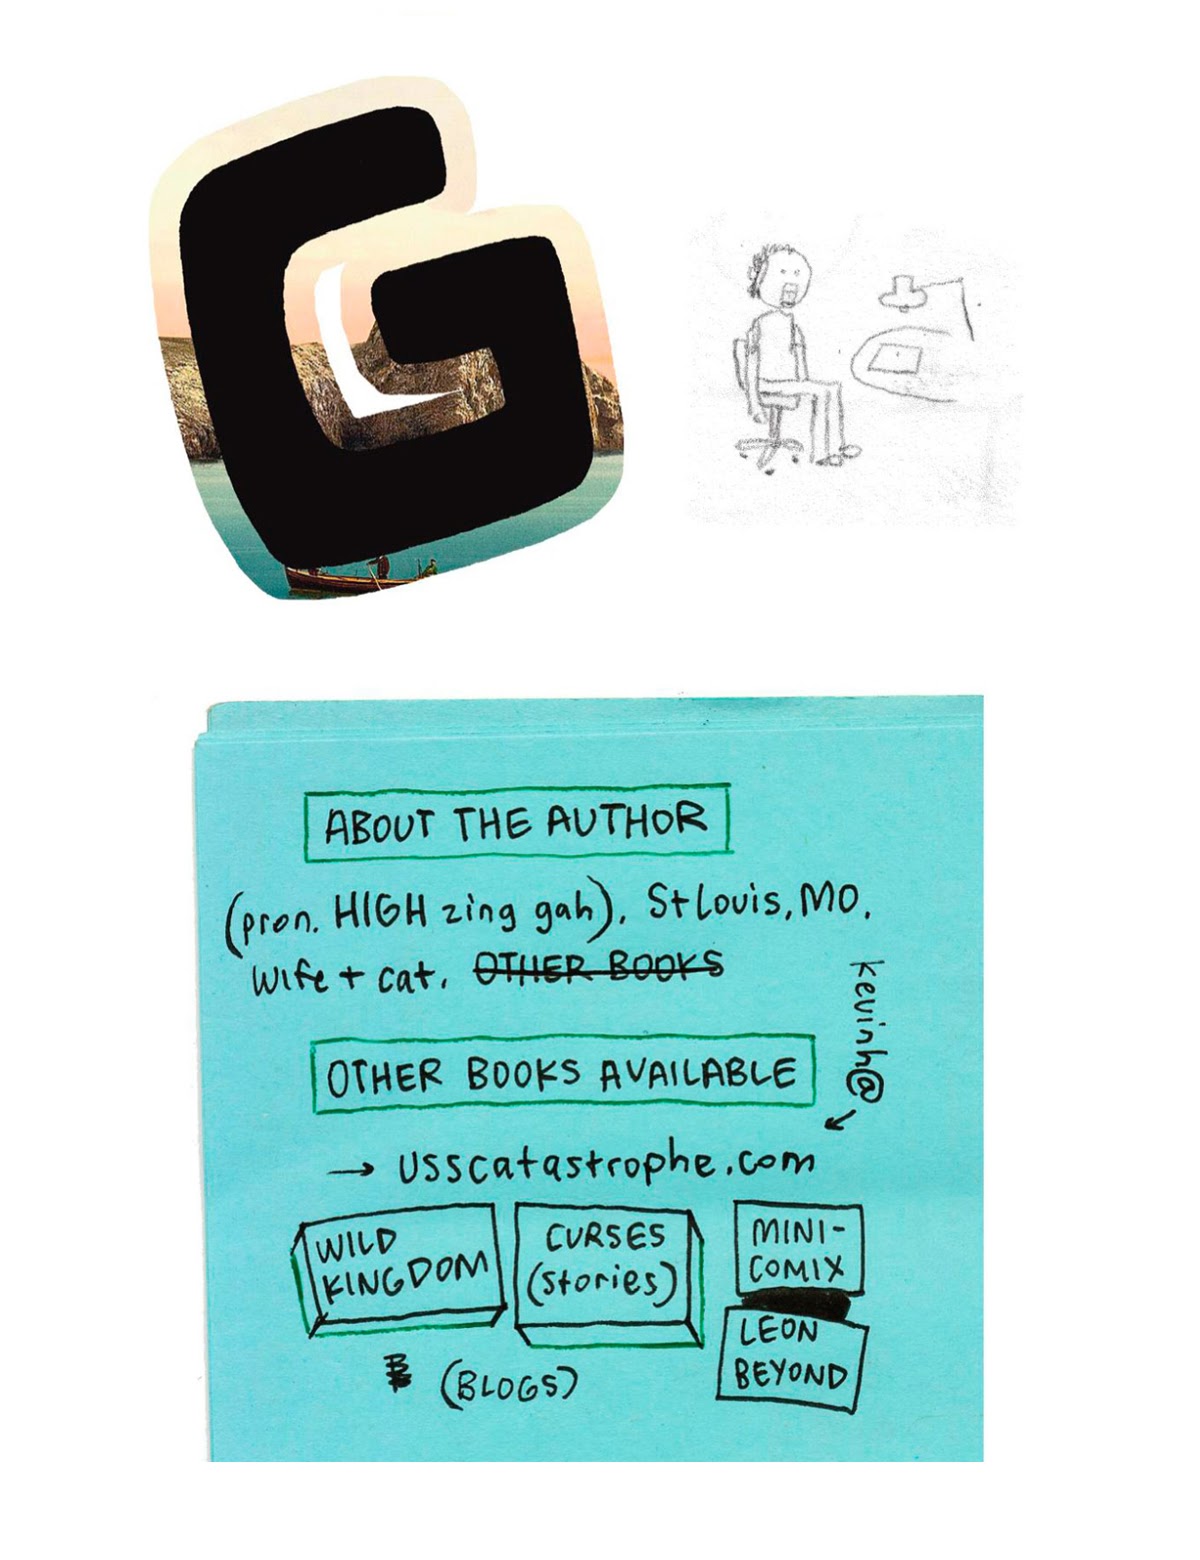 G
ABOUT THE AUTHOR
(pron. HIGH zing gah), St Louis, MO.
Wife + cat. OTHER BOOKS
kevinh@
OTHER BOOKS AVAILABLE
→ usscatastrophe.com
WILD
KINGDOM
CURSES
(stories)
MINI-
COMIX
LEON
BEYOND
(BLOGS)